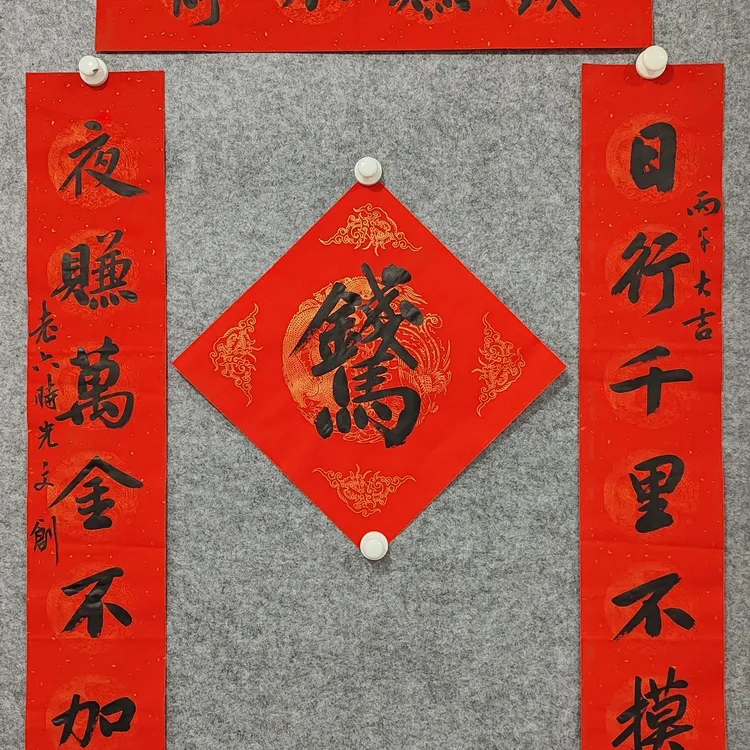 日行千里不摸
丙午大吉
錢馬
夜賺萬金不加
老六時光文創